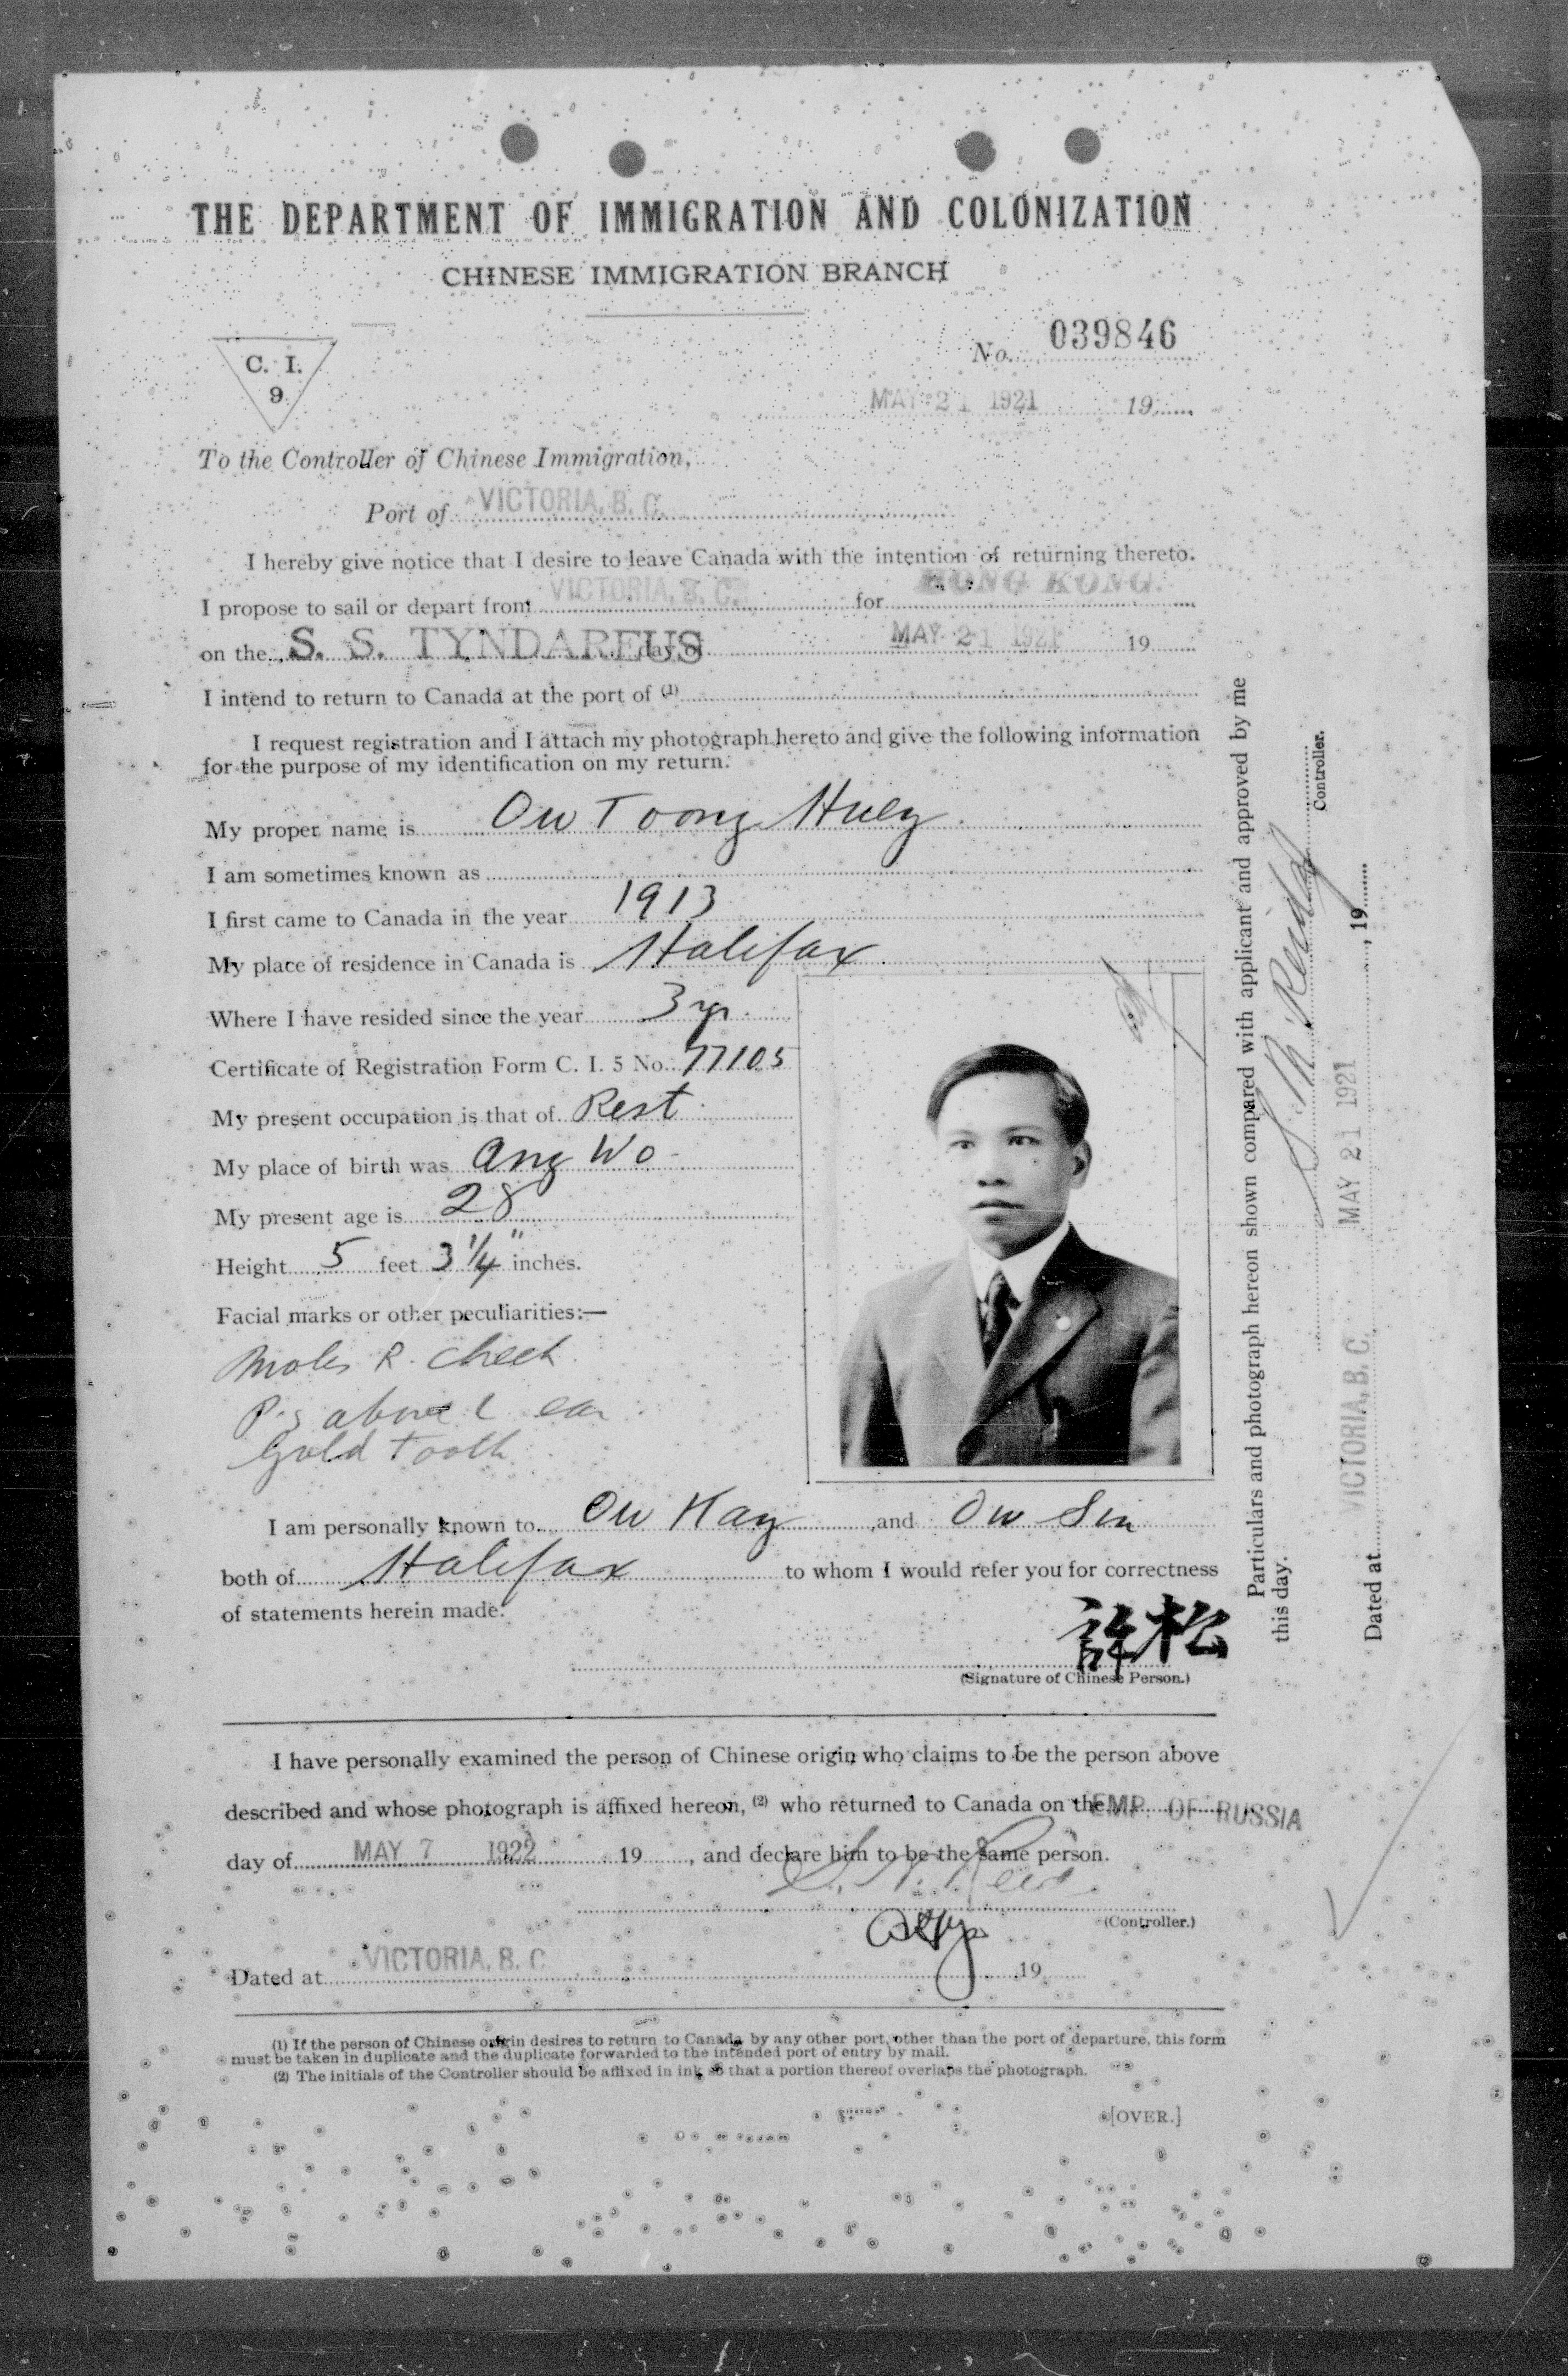 THE DEPARTMENT OF IMMIGRATION AND COLONIZATION
CHINESE IMMIGRATION BRANCH
C. I.
9
No. 039846
MAY 21 1921 19
To the Controller of Chinese Immigration,
Port of VICTORIA, B. C.
I hereby give notice that I desire to leave Canada with the intention of returning thereto.
I propose to sail or depart from VICTORIA, B. C. for HONG KONG.
on the S. S. TYNDAREUS day of MAY 21 1921 19
I intend to return to Canada at the port of (1)
I request registration and I attach my photograph hereto and give the following information
for the purpose of my identification on my return.
My proper name is Ow Toong Huey
I am sometimes known as
I first came to Canada in the year 1913
My place of residence in Canada is Halifax
Where I have resided since the year 3 yr.
Certificate of Registration Form C. I. 5 No. 77105
My present occupation is that of Rest
My place of birth was Ang Wo
My present age is 28
Height 5 feet 3 1/4" inches.
Facial marks or other peculiarities:—
Moles R. cheek
above L ear
Gold tooth
I am personally known to Ow Kay and Ow Sin
both of Halifax to whom I would refer you for correctness
of statements herein made.
許松
(Signature of Chinese Person.)
I have personally examined the person of Chinese origin who claims to be the person above
described and whose photograph is affixed hereon, (2) who returned to Canada on the EMP. OF RUSSIA
day of MAY 7 1922 19 , and declare him to be the same person.
(Controller.)
Dated at VICTORIA, B. C. 19
(1) If the person of Chinese origin desires to return to Canada by any other port, other than the port of departure, this form
must be taken in duplicate and the duplicate forwarded to the intended port of entry by mail.
(2) The initials of the Controller should be affixed in ink so that a portion thereof overlaps the photograph.
[OVER.]
Particulars and photograph hereon shown compared with applicant and approved by me
this day.
Controller.
Dated at VICTORIA, B. C. MAY 21 1921 , 19